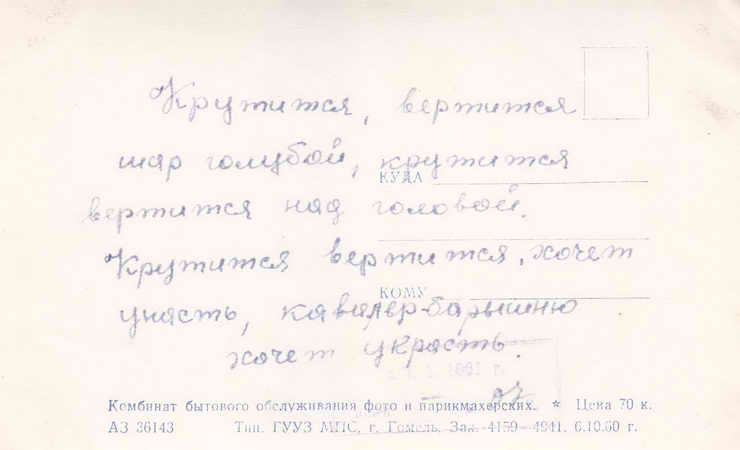 Крутится, вертится
шар голубой, крутится
КУДА
вертится над головой.
Крутится вертится, хочет
КОМУ
упасть, кавалер-барышню
хочет украсть.
1961 г.
Комбинат бытового обслуживания фото и парикмахерских. ★ Цена 70 к.
АЗ 36143 Тип. ГУУЗ МПС, г. Гомель, Зак. 4159—4941. 6.10.60 г.